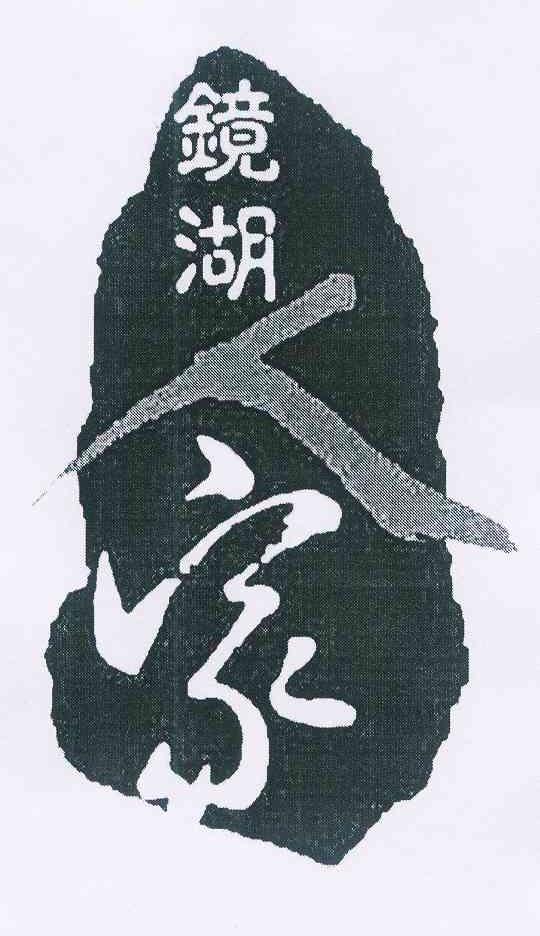 鏡湖
人
家